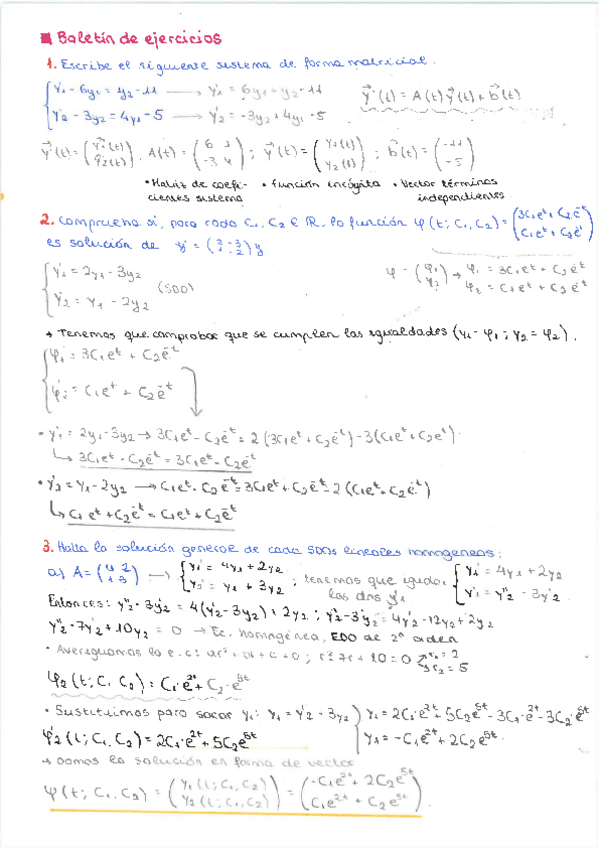 Boletín de ejercicios
1. Escribe el siguiente sistema de forma matricial.
y'1 - 6y1 = y2 - 11 → y'1 = 6y1 + y2 - 11
y⃗'(t) = A(t) y⃗(t) + b⃗(t)
y'2 - 3y2 = 4y1 - 5 → y'2 = -3y2 + 4y1 - 5
A(t) = (6 1 / -3 4) ; y⃗(t) = (y1(t) / y2(t)) ; b⃗(t) = (-11 / -5)
• Matriz de coefi- cientes sistema
• Función incógnita
• Vector términos independientes
2. Comprueba si, para todo C1, C2 ∈ ℝ, la función φ(t; C1, C2) = (3C1e^t + C2e^-t / C1e^t + C2e^-t)
es solución de y' = (2 -3 / 1 -2) y
y'1 = 2y1 - 3y2
y'2 = y1 - 2y2
(SDO)
φ1 = 3C1e^t + C2e^-t
φ2 = C1e^t + C2e^-t
→ Tenemos que comprobar que se cumplen las igualdades (y1 = φ1 ; y2 = φ2).
φ1 = 3C1e^t + C2e^-t
= C1e^t + C2e^-t
• y'1 = 2y1 - 3y2 → 3C1e^t - C2e^-t = 2(3C1e^t + C2e^-t) - 3(C1e^t + C2e^-t)
↳ 3C1e^t - C2e^-t = 3C1e^t - C2e^-t
• y'2 = y1 - 2y2 → C1e^t - C2e^-t = 3C1e^t + C2e^-t - 2(C1e^t + C2e^-t)
↳ C1e^t + C2e^-t = C1e^t + C2e^-t
3. Halla la solución general de cada SDOs lineales homogéneas:
a) A = (4 2 / 1 3) → y'1 = 4y1 + 2y2
y'2 = y1 + 3y2
; tenemos que igualar las dos y'1
y'1 = 4y1 + 2y2
y'1 = y''2 - 3y'2
Entonces: y''2 - 3y'2 = 4(y'2 - 3y2) + 2y2 ; y''2 - 3y'2 = 4y'2 - 12y2 + 2y2
y''2 - 7y'2 + 10y2 = 0 → Ec. homogénea, EDO de 2º orden
• Averiguamos la e.c: ar² + br + c = 0 ; r² - 7r + 10 = 0 r1 = 2
r2 = 5
φ2(t; C1, C2) = C1·e^2t + C2·e^5t
• Sustituimos para sacar y1: y1 = y'2 - 3y2
y1 = 2C1·e^2t + 5C2e^5t - 3C1·e^2t - 3C2·e^5t
φ'2(t; C1, C2) = 2C1·e^2t + 5C2e^5t
y1 = -C1e^2t + 2C2e^5t.
→ Damos la solución en forma de vector
φ(t; C1, C2) = (y1(t; C1, C2) / y2(t; C1, C2)) = (-C1e^2t + 2C2e^5t / C1e^2t + C2e^5t).